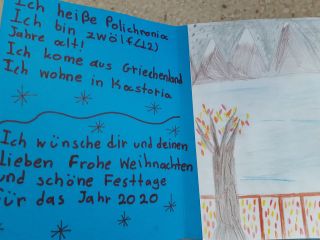 Ich heiße Polichronia
Ich bin zwölf(12)
Jahre alt!
Ich kome aus Griechenland
Ich wohne in Kastoria
Ich wünsche dir und deinen
lieben Frohe Weihnachten
und schöne Festtage
für das Jahr 2020